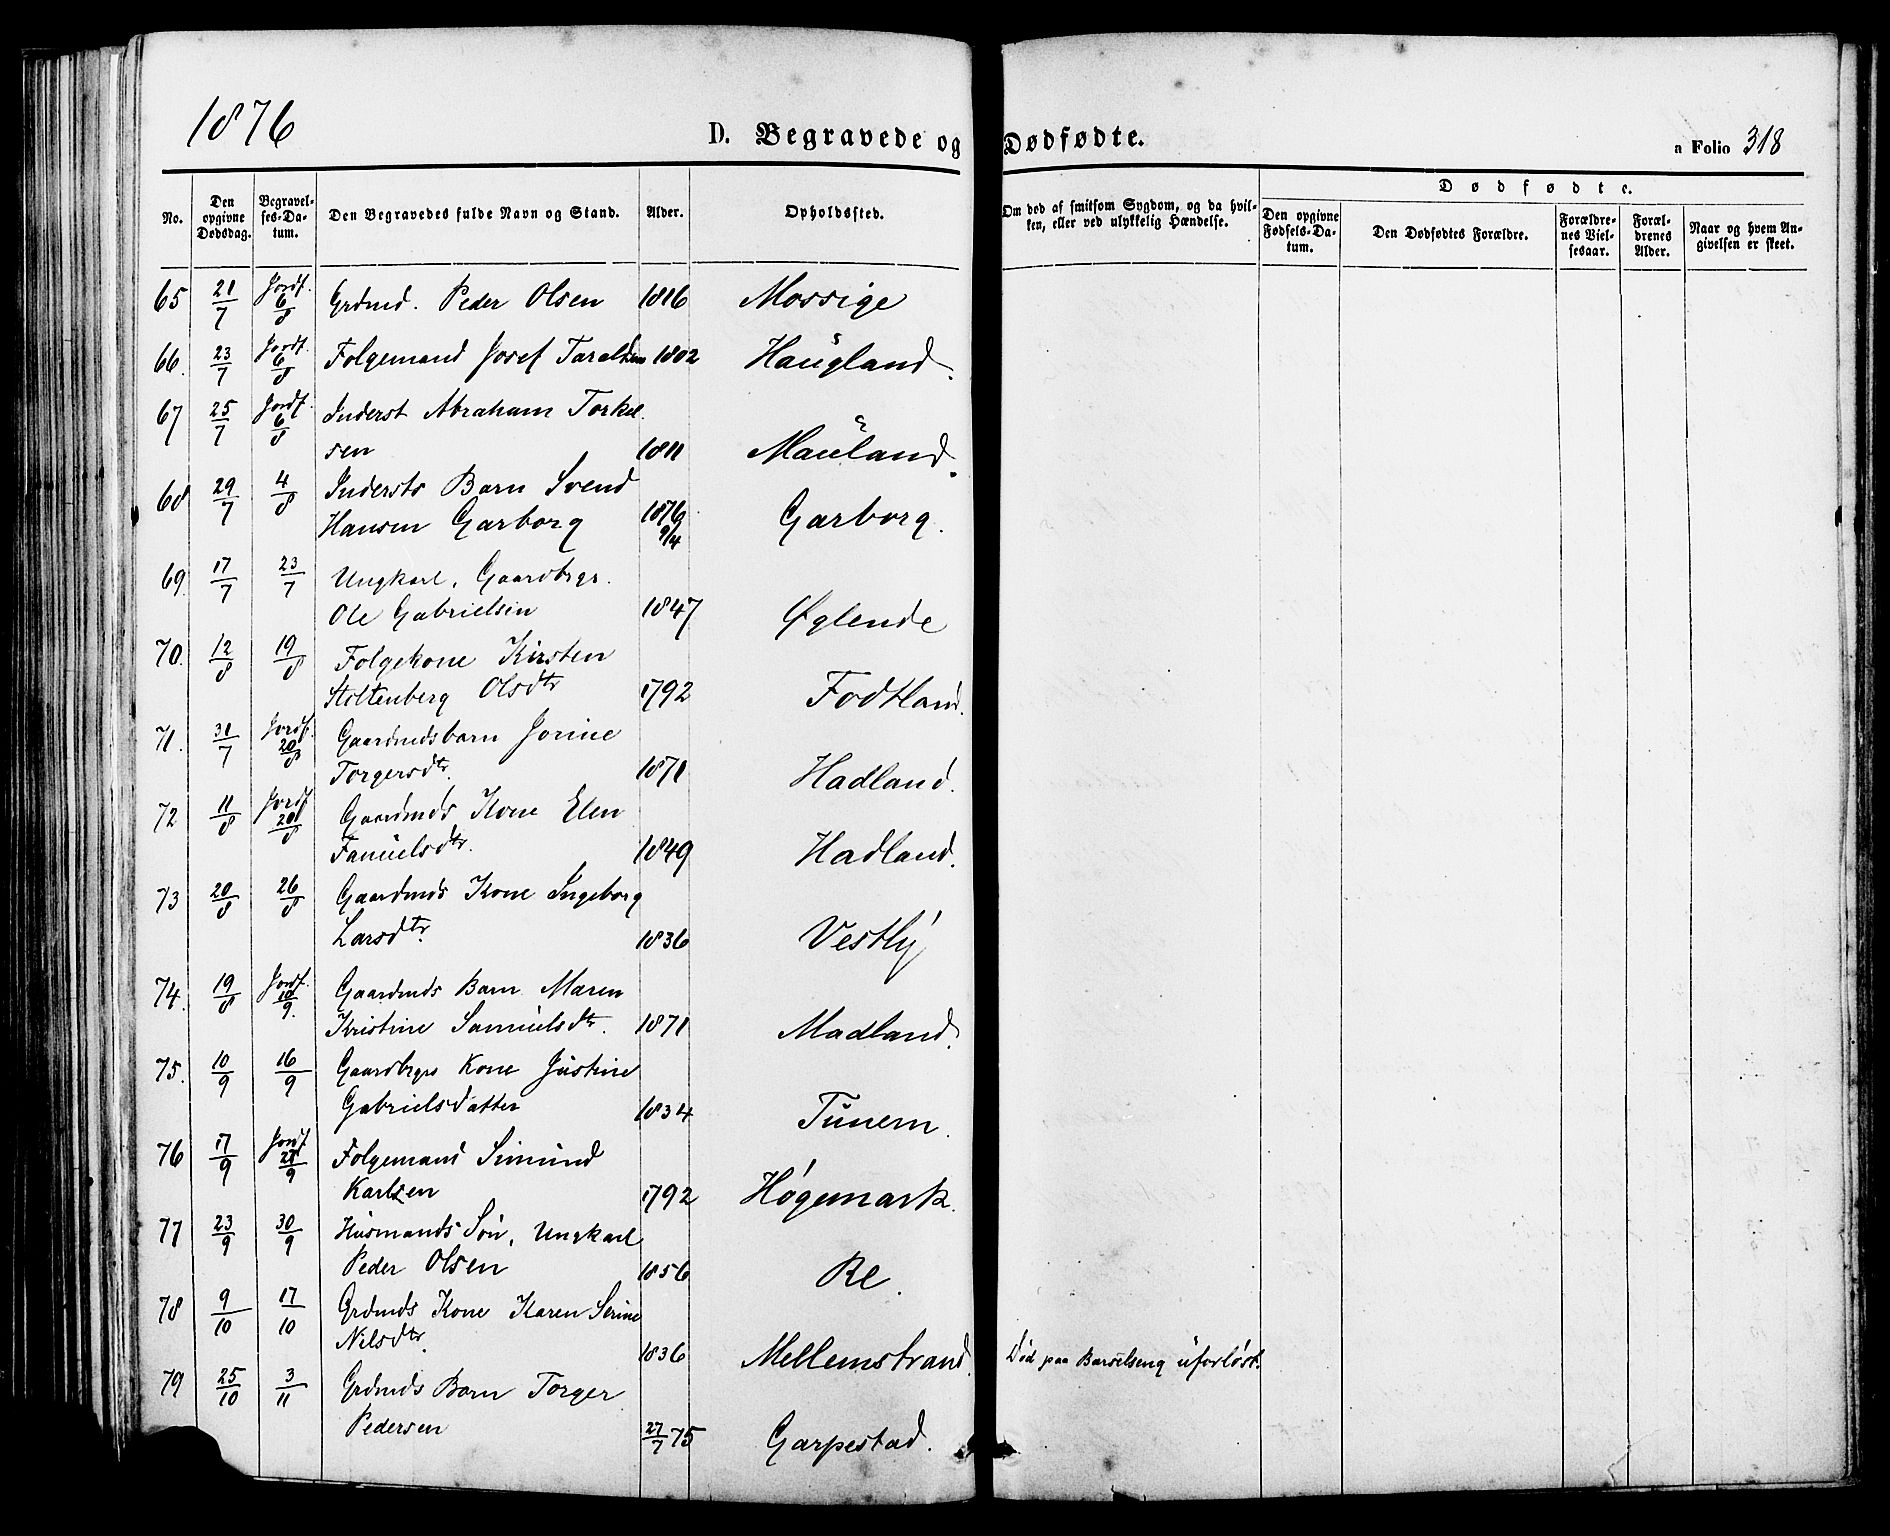 1876
D. Begravede og Dødfødte.
a Folio 318
No.
Den opgivne Dødsdag.
Begravelses-Datum.
Den Begravedes fulde Navn og Stand.
Alder.
Opholdssted.
Om død af smitsom Sygdom, og da hvilken, eller ved ulykkelig Hændelse.
Dødfødte.
Den opgivne Fødsels-Datum.
Den Dødfødtes Forældre.
Forældrenes Vielsesaar.
Forældrenes Alder.
Naar og hvem Angivelsen er skeet.
65 21/7 Jordf. 6/8 Grdmd. Peder Olsen 1816 Mossige
66. 23/7 Jordf. 6/8 Folgemand Josef Taraldsen 1802 Haugland.
67 25/7 Jordf. 6/8 Inderst Abraham Torkel
sen 1811 Mauland.
68 29/7 4/8 Indersts Barn Svend
Hansen Garborg 1876 9/4 Garborg.
69. 17/7 23/7 Ungkarl, Gaardbrgr.
Ole Gabrielsen 1847 Øglende
70. 12/8 19/8 Folgekone Kirsten
Stoltenberg Olsdtr 1792 Fodtland.
71. 31/7 Jordf. 20/8 Gaardmdsbarn Jorine
Torgersdtr. 1871 Hadland.
72 11/8 Jordf 20/8 Gaardmds Kone Elen
Samuelsdtr. 1849 Hadland.
73 20/8 26/8 Gaardmds Kone Ingeborg
Larsdtr. 1836 Vestly
74. 19/8 Jordf. 10/9. Gaardmds Barn Maren
Kristine Samuelsdtr. 1871 Madland.
75. 10/9 16/9 Gaardbrgrs Kone Justine
Gabrielsdatter 1834 Tunem.
76 17/9 Jordf 21/9 Folgemand Simund
Karlsen 1792 Høgemark.
77 23/9 30/9 Husmands Søn, Ungkarl
Peder Olsen 1856 Re.
78 9/10 17/10 Grdmds Kone Karen Serine
Nilsdtr. 1836 Mellemstrand. Død paa Barselseng uforløst.
79 25/10 3/11 Grdmds Barn Torger
Pedersen 27/7 75 Garpestad.